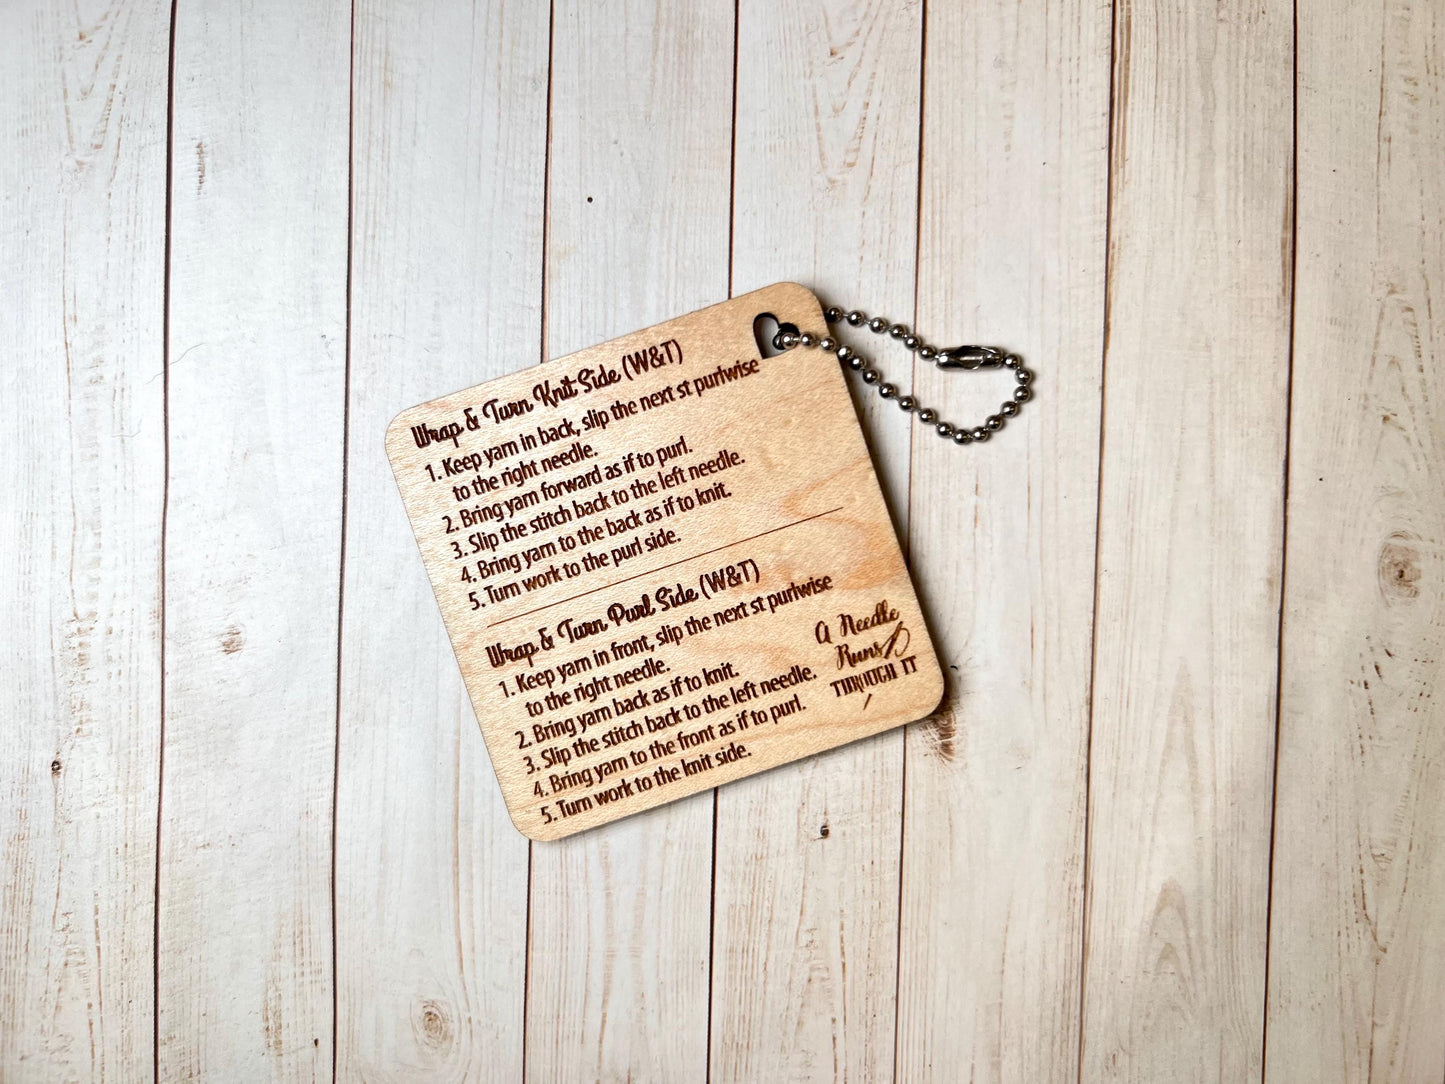 Wrap & Turn Knit Side (W&T)
1. Keep yarn in back, slip the next st purlwise
to the right needle.
2. Bring yarn forward as if to purl.
3. Slip the stitch back to the left needle.
4. Bring yarn to the back as if to knit.
5. Turn work to the purl side.
Wrap & Turn Purl Side (W&T)
1. Keep yarn in front, slip the next st purlwise
to the right needle.
2. Bring yarn back as if to knit.
3. Slip the stitch back to the left needle.
4. Bring yarn to the front as if to purl.
5. Turn work to the knit side.
A Needle
Runs
THROUGH IT